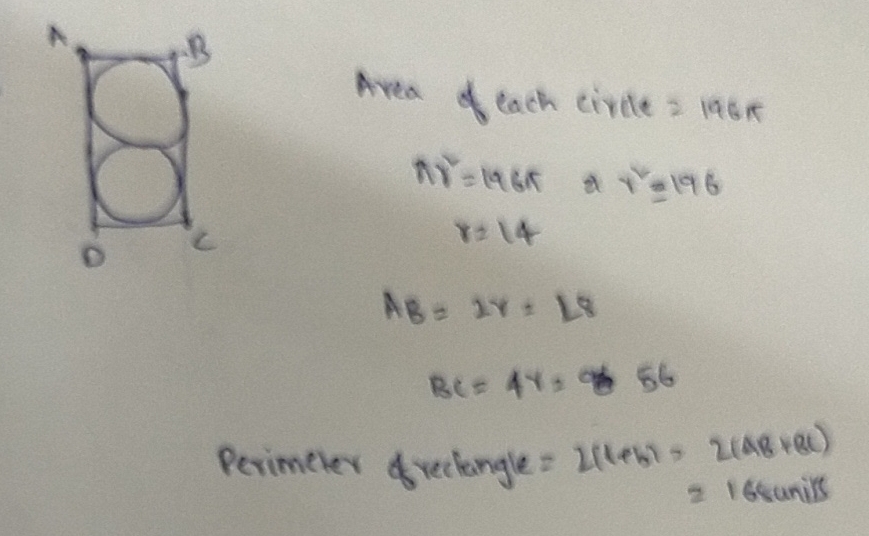 A B
Area of each circle = 196π
πr² = 196π r² = 196
r = 14
AB = 2r = 28
D C
BC = 4r = 56
Perimeter of rectangle = 2(l+b) = 2(AB+BC)
= 168 units